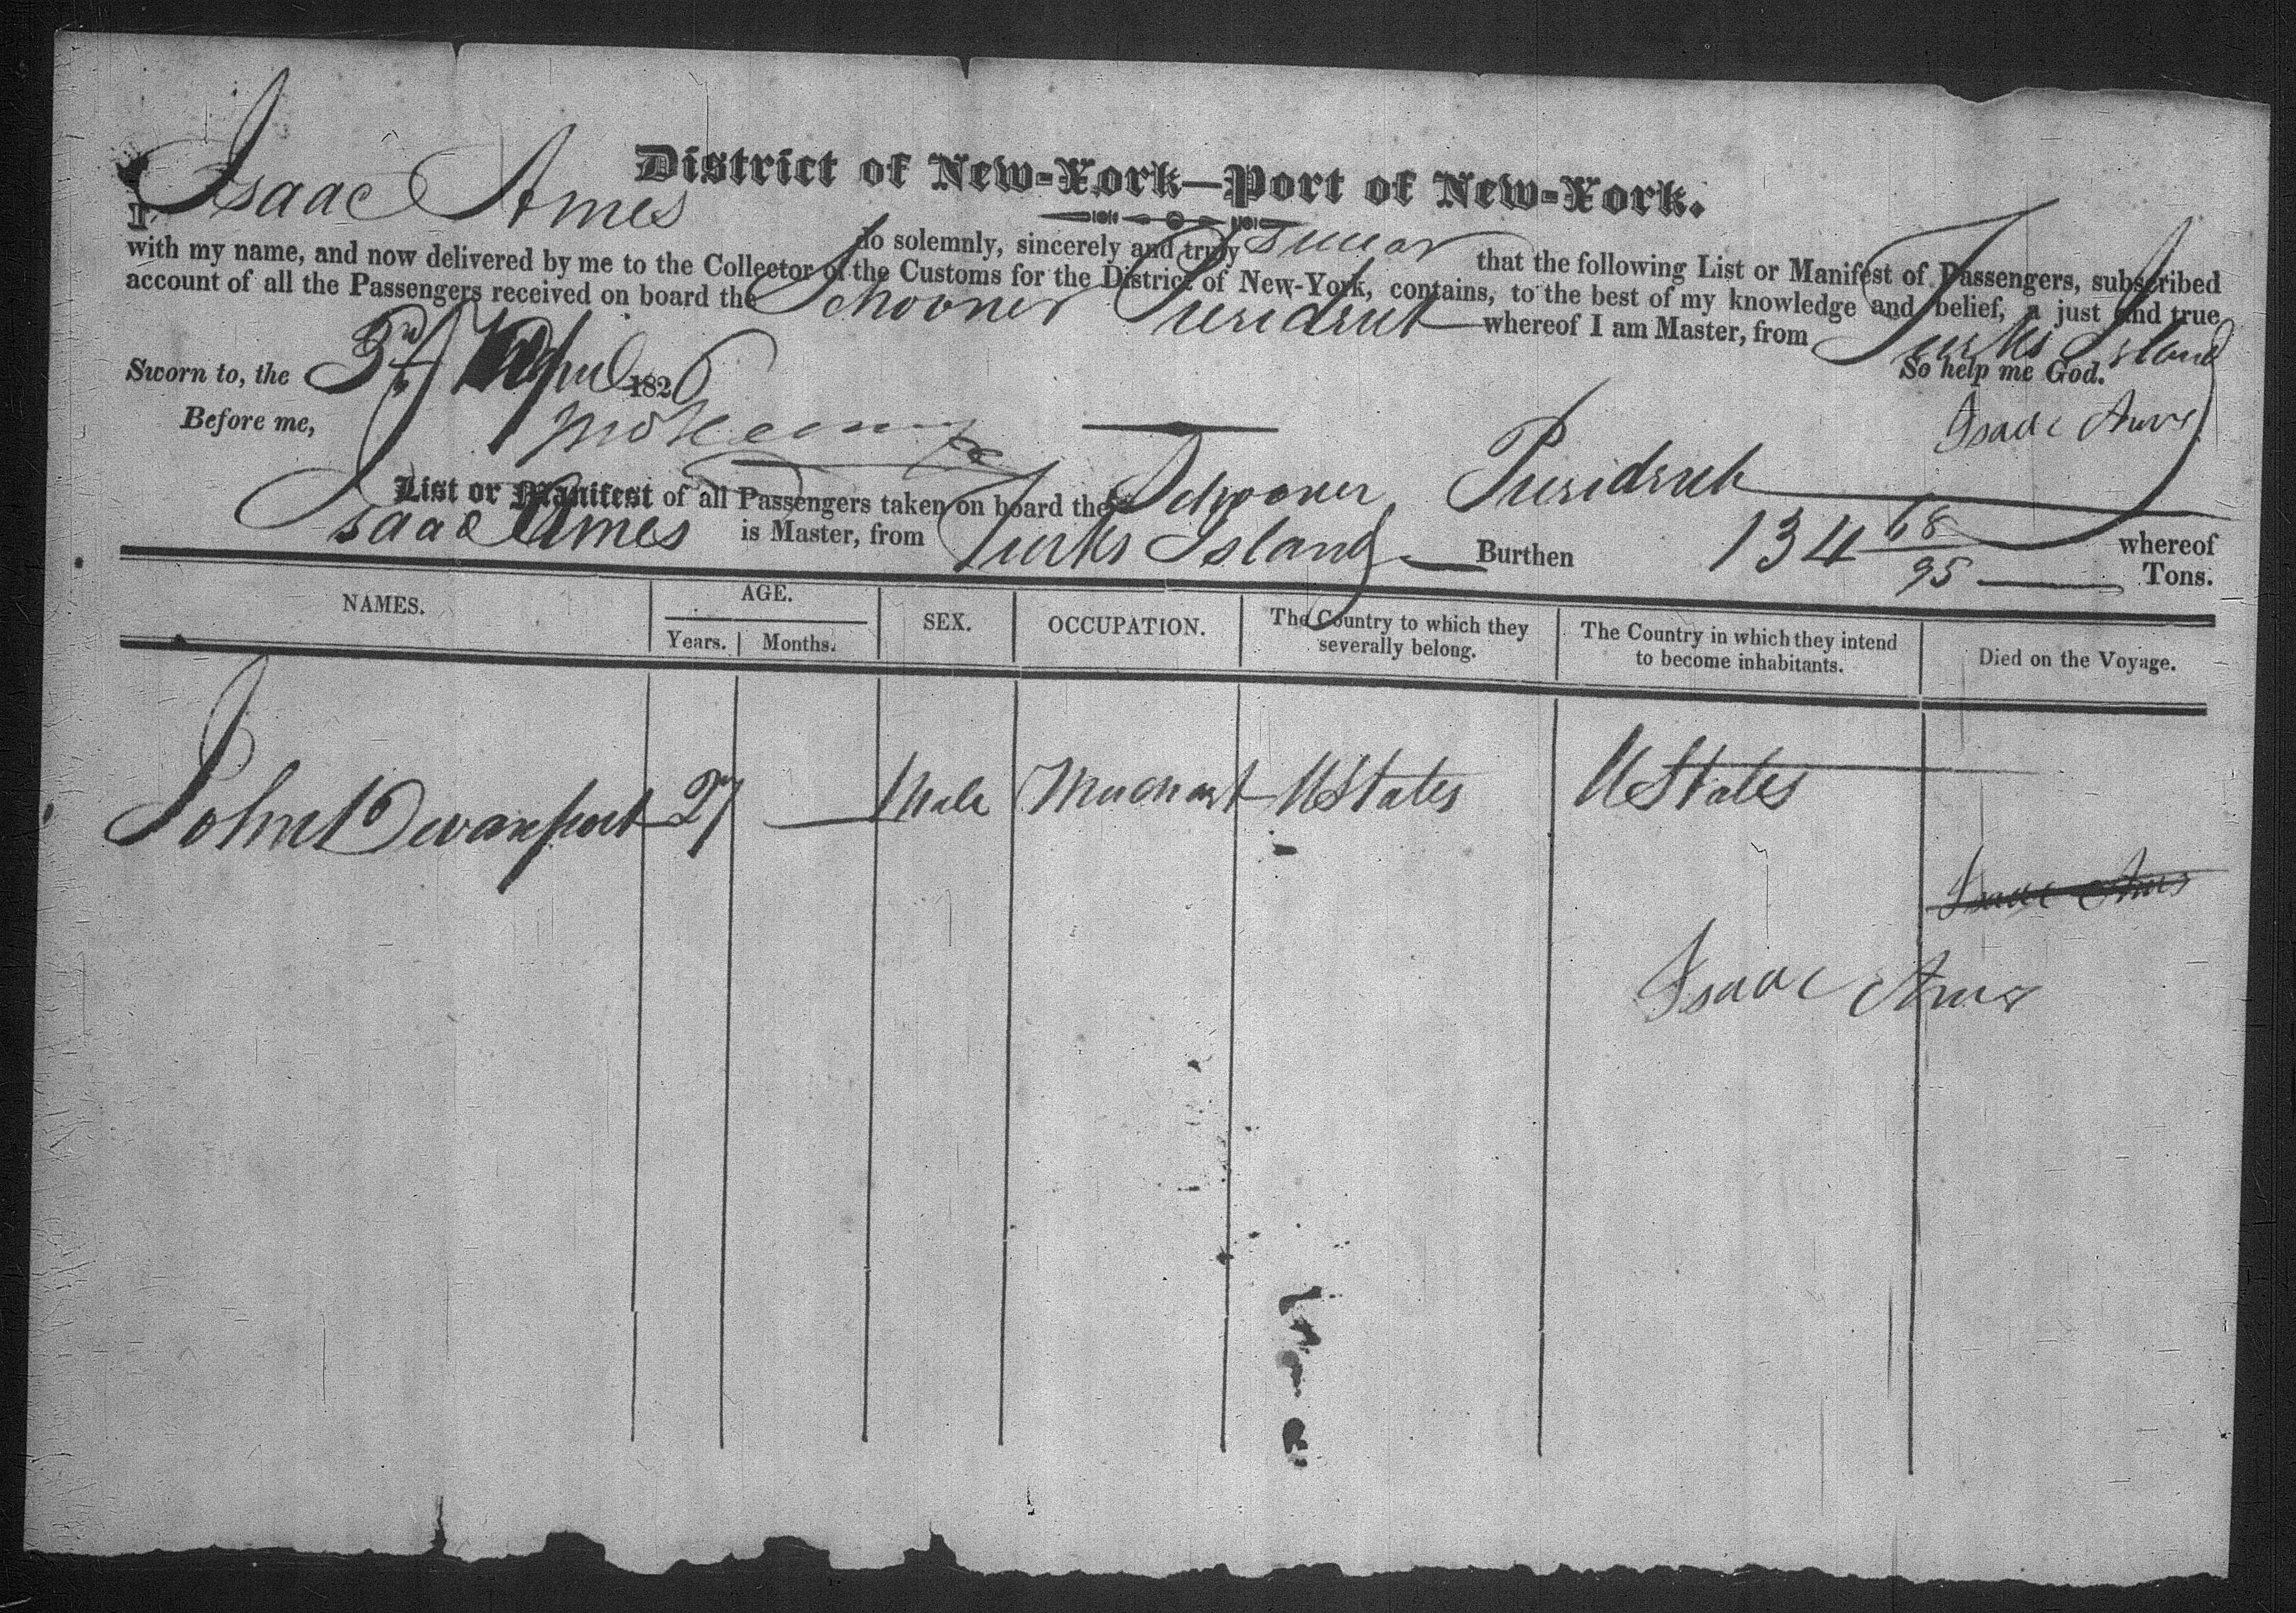 District of New-York—Port of New-York.
I, Isaac Ames do solemnly, sincerely and truly swear that the following List or Manifest of Passengers, subscribed
with my name, and now delivered by me to the Collector of the Customs for the District of New-York, contains, to the best of my knowledge and belief, a just and true
account of all the Passengers received on board the Schooner whereof I am Master, from Turks Island
Sworn to, the 3rd April 1826 So help me God.
Before me, Isaac Ames
List or Manifest of all Passengers taken on board the Schooner whereof
Isaac Ames is Master, from Turks Island Burthen 134 68/95 Tons.
NAMES. AGE. Years. Months. SEX. OCCUPATION. The Country to which they severally belong. The Country in which they intend to become inhabitants. Died on the Voyage.
John Devanport 27 — Male Merchant UStates UStates
Isaac Ames
Isaac Ames